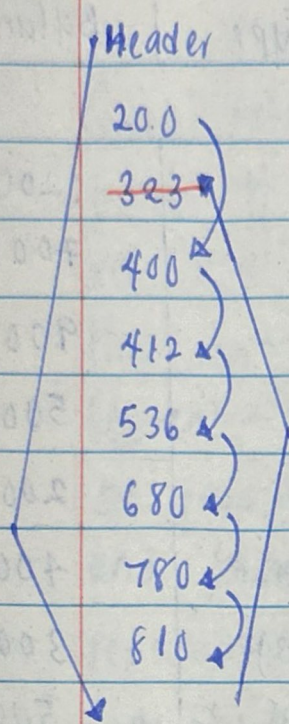 Header
200
323
400
412
536
680
780
810